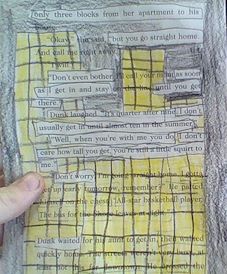 only three blocks from her apartment to his
"Okay," she said, "but you go straight home.
And call me right away."
"I will."
"Don't even bother. I'll call your mom as soon
as I get in and stay on the line until you get
there.
Dunk laughed. "It's quarter after nine. I don't
usually get in until almost ten in the summer."
"Well, when you're with me you do. I don't
care how tall you get, you're still a little squirt to
me."
"Don't worry. I'm going straight home. I gotta
get up early tomorrow, remember?" He patted
on the chest. "All-star basketball player.
The bus for the leaves at eight."
Dunk waited for his aunt to get in, then walked
quickly home. The streets weren't very busy, at
least not this far